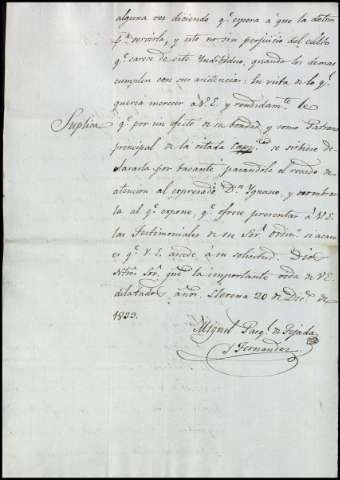 alguna vez diciendo q.e espera à que la deten
p.a servirla, y esto no sin perjuicio del culto
q.e carece de este Yndibiduo, quando los demas
cumplen con sus asistencias: En vista de lo q.l
queria merecer à V.E. y rendidam.te le
Suplica q.e por un efecto de su bondad, y como Patrono
principal de la citada se sirbiese de
clararla por bacante, pasandole el recado de
atencion al expresado D.n Ygnacio, y nombrar
la el q.e expone, q.e ofrece presentar à V.E.
las testimoniales de su Sor. ordin.o si acaso
es q.e V.E. accede à su solicitud. Dios
Ntro. Sor. gue. la importante vida de V.E.
dilatados años. Llerena 20 de Dic.re de
1833.
Miguel de Tejada
y Fernandez